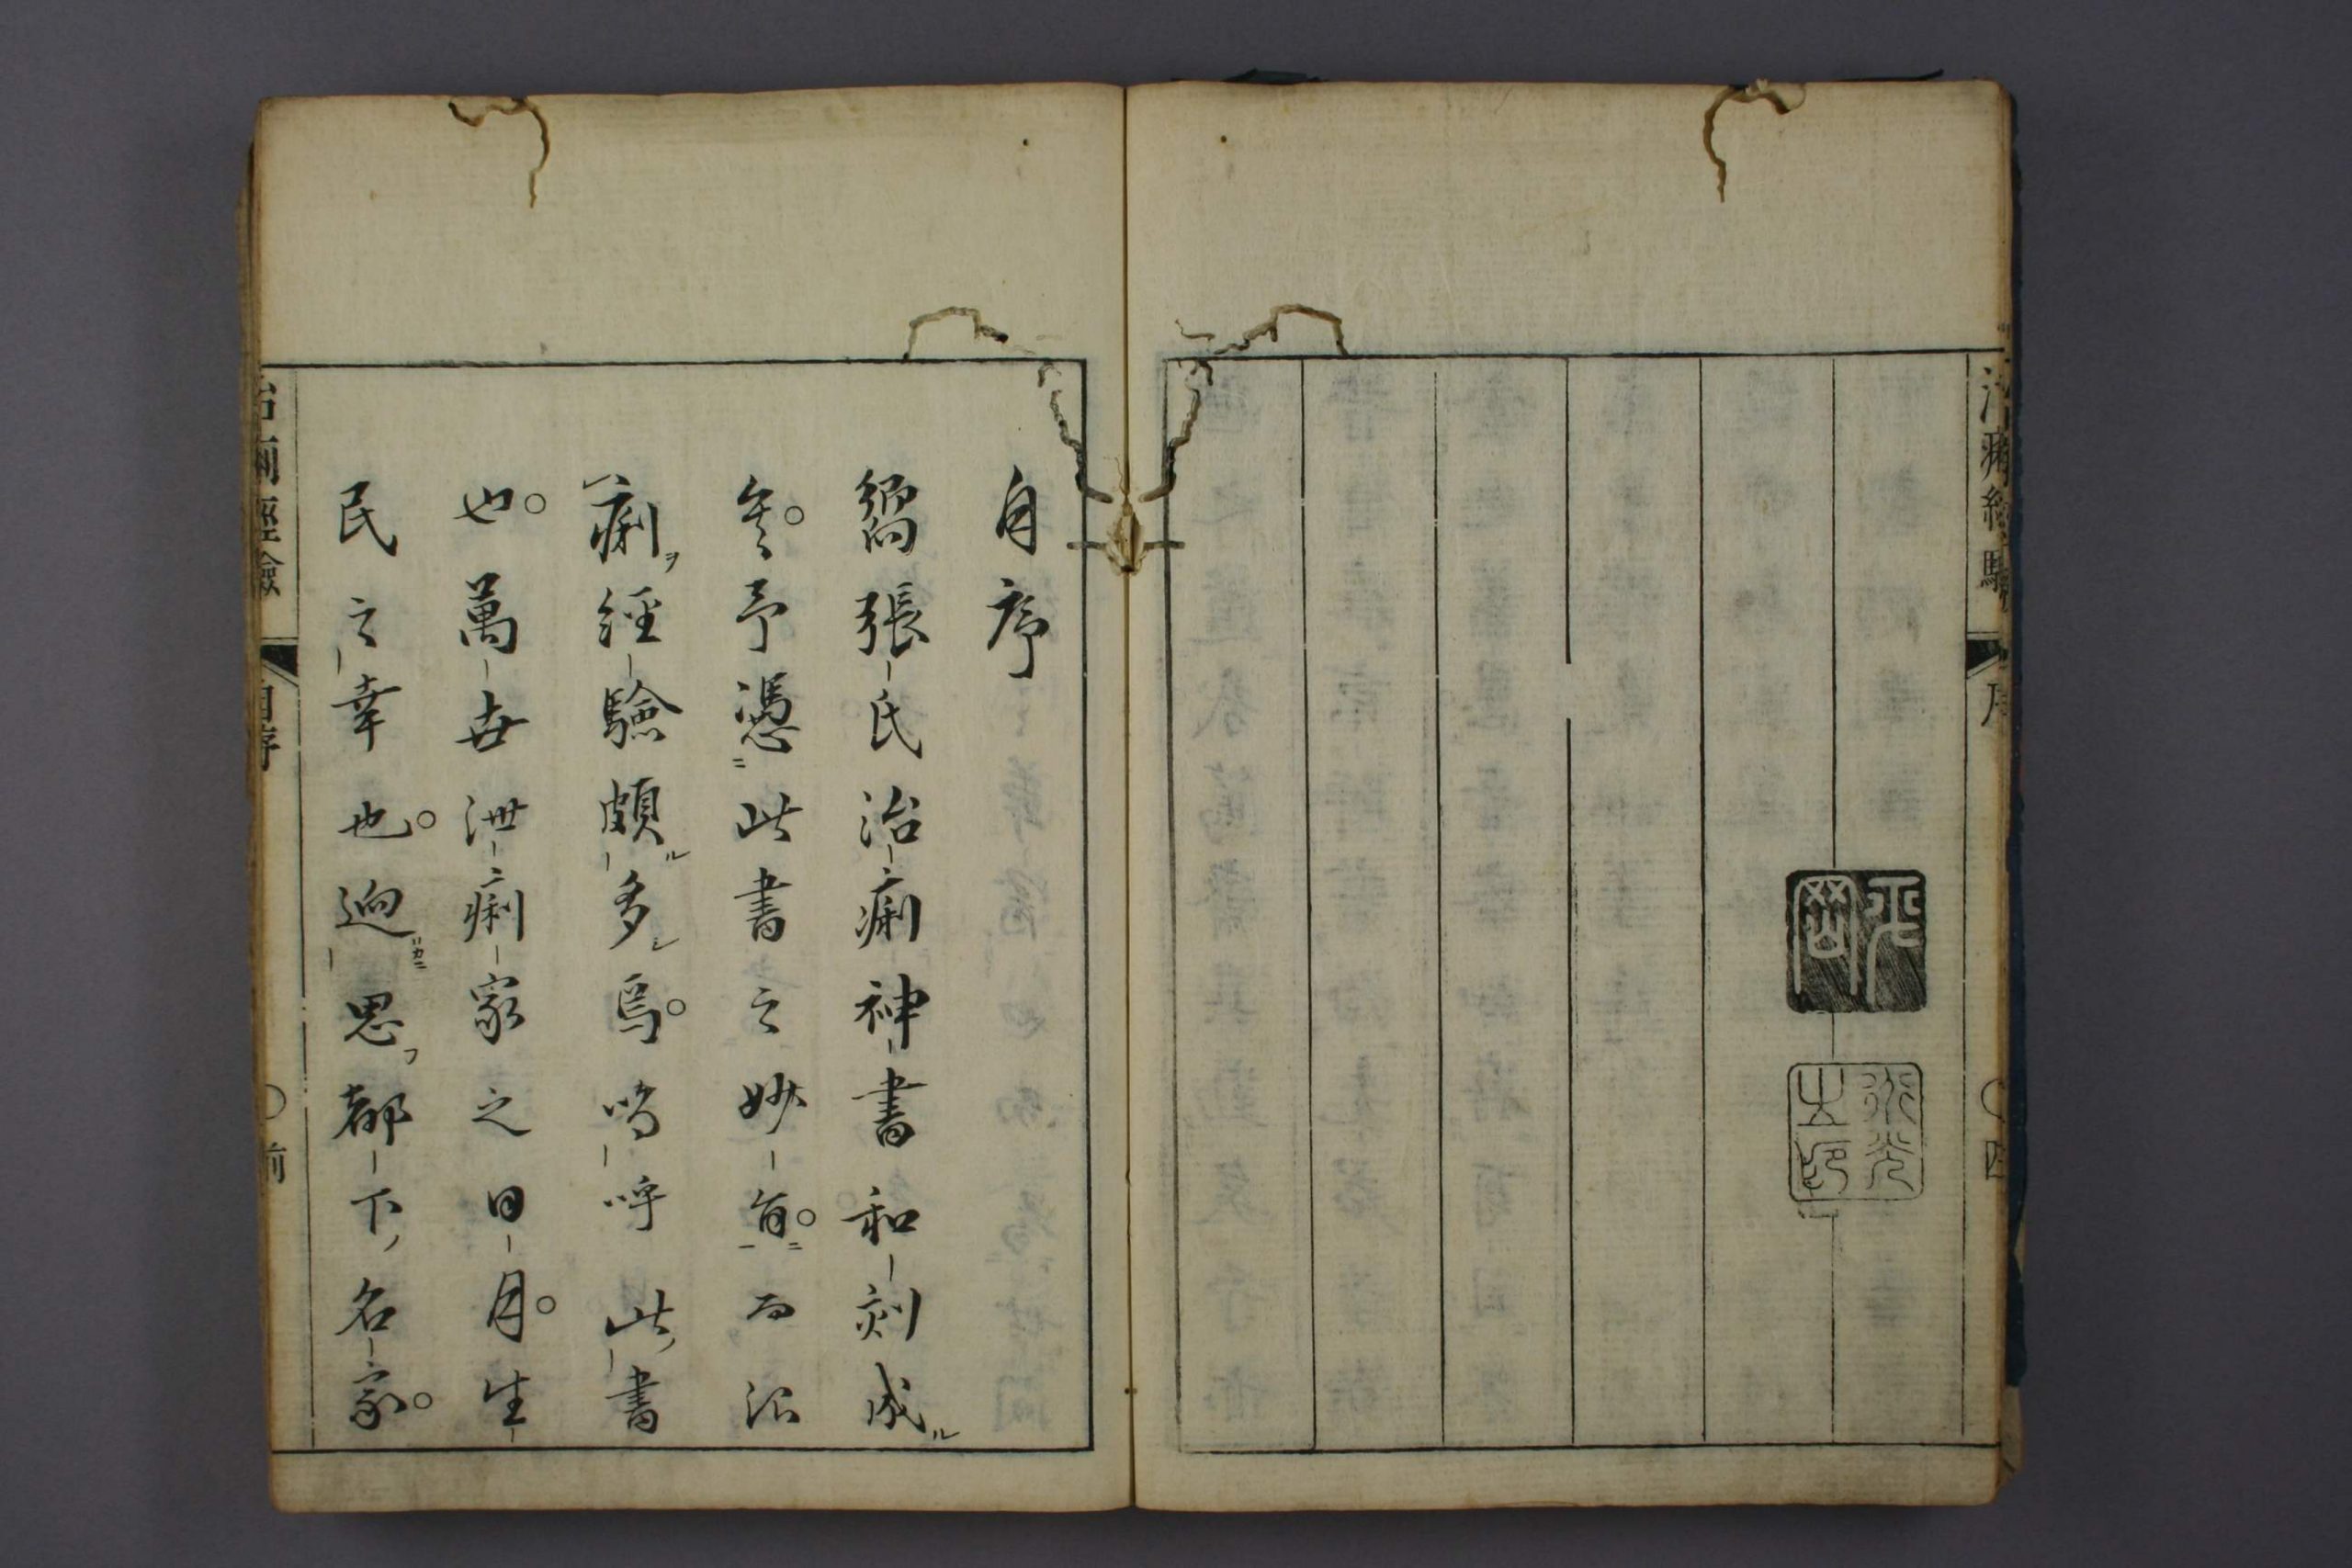 治痢經驗 序 ○四
平岡
之印
自序
張氏治痢神書和刻成
矣。予憑此書之妙旨。而治
痢經驗頗多焉。嗚呼此書
也。萬世泄痢家之日月。生
民之幸也。迥思都下名家。
治痢經驗 自序 ○前